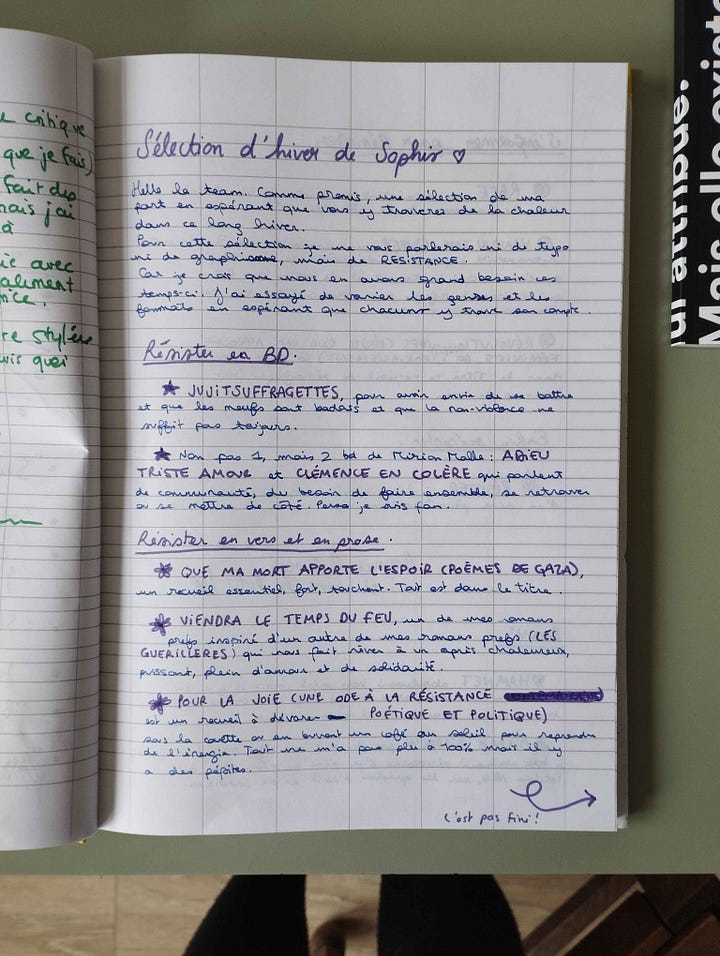 e critique
que je fais)
fait des
mais j'ai
à
ie avec
alement
nce.
re stylée
uis quoi
Sélection d'hiver de Sophie ♡
Hello la team. Comme promis, une sélection de ma
part en espérant que vous y trouverez de la chaleur
dans ce long hiver.
Pour cette sélection je ne vous parlerais ni de typo
ni de graphisme, mais de RESISTANCE.
Car je crois que nous en avons grand besoin ces
temps-ci. J'ai essayé de varier les genres et les
formats en espérant que chacun·e y trouve son compte.
Résister en BD.
★ JUJITSUFFRAGETTES, pour avoir envie de se battre
et que les meufs sont badass et que la non-violence ne
suffit pas toujours.
★ Non pas 1, mais 2 bd de Mirion Malle : ADIEU
TRISTE AMOUR et CLÉMENCE EN COLÈRE qui parlent
de communauté, du besoin de faire ensemble, se retrouver
ou se mettre de côté. Perso je suis fan.
Résister en vers et en prose.
QUE MA MORT APPORTE L'ESPOIR (POÈMES DE GAZA),
un recueil essentiel, fort, touchant. Tout est dans le titre.
VIENDRA LE TEMPS DU FEU, un de mes romans
prefs inspiré d'un autre de mes romans prefs (LES
GUERILLERES) qui nous fait rêver à un après chaleureux,
puissant, plein d'amour et de solidarité.
POUR LA JOIE (UNE ODE À LA RÉSISTANCE
est un recueil à dévorer POÉTIQUE ET POLITIQUE)
sous la couette ou en buvant un café au soleil pour reprendre
de l'énergie. Tout ne m'a pas plu à 100% mais il y
a des pépites.
c'est pas fini !
ur attribué.
Mais elle existe